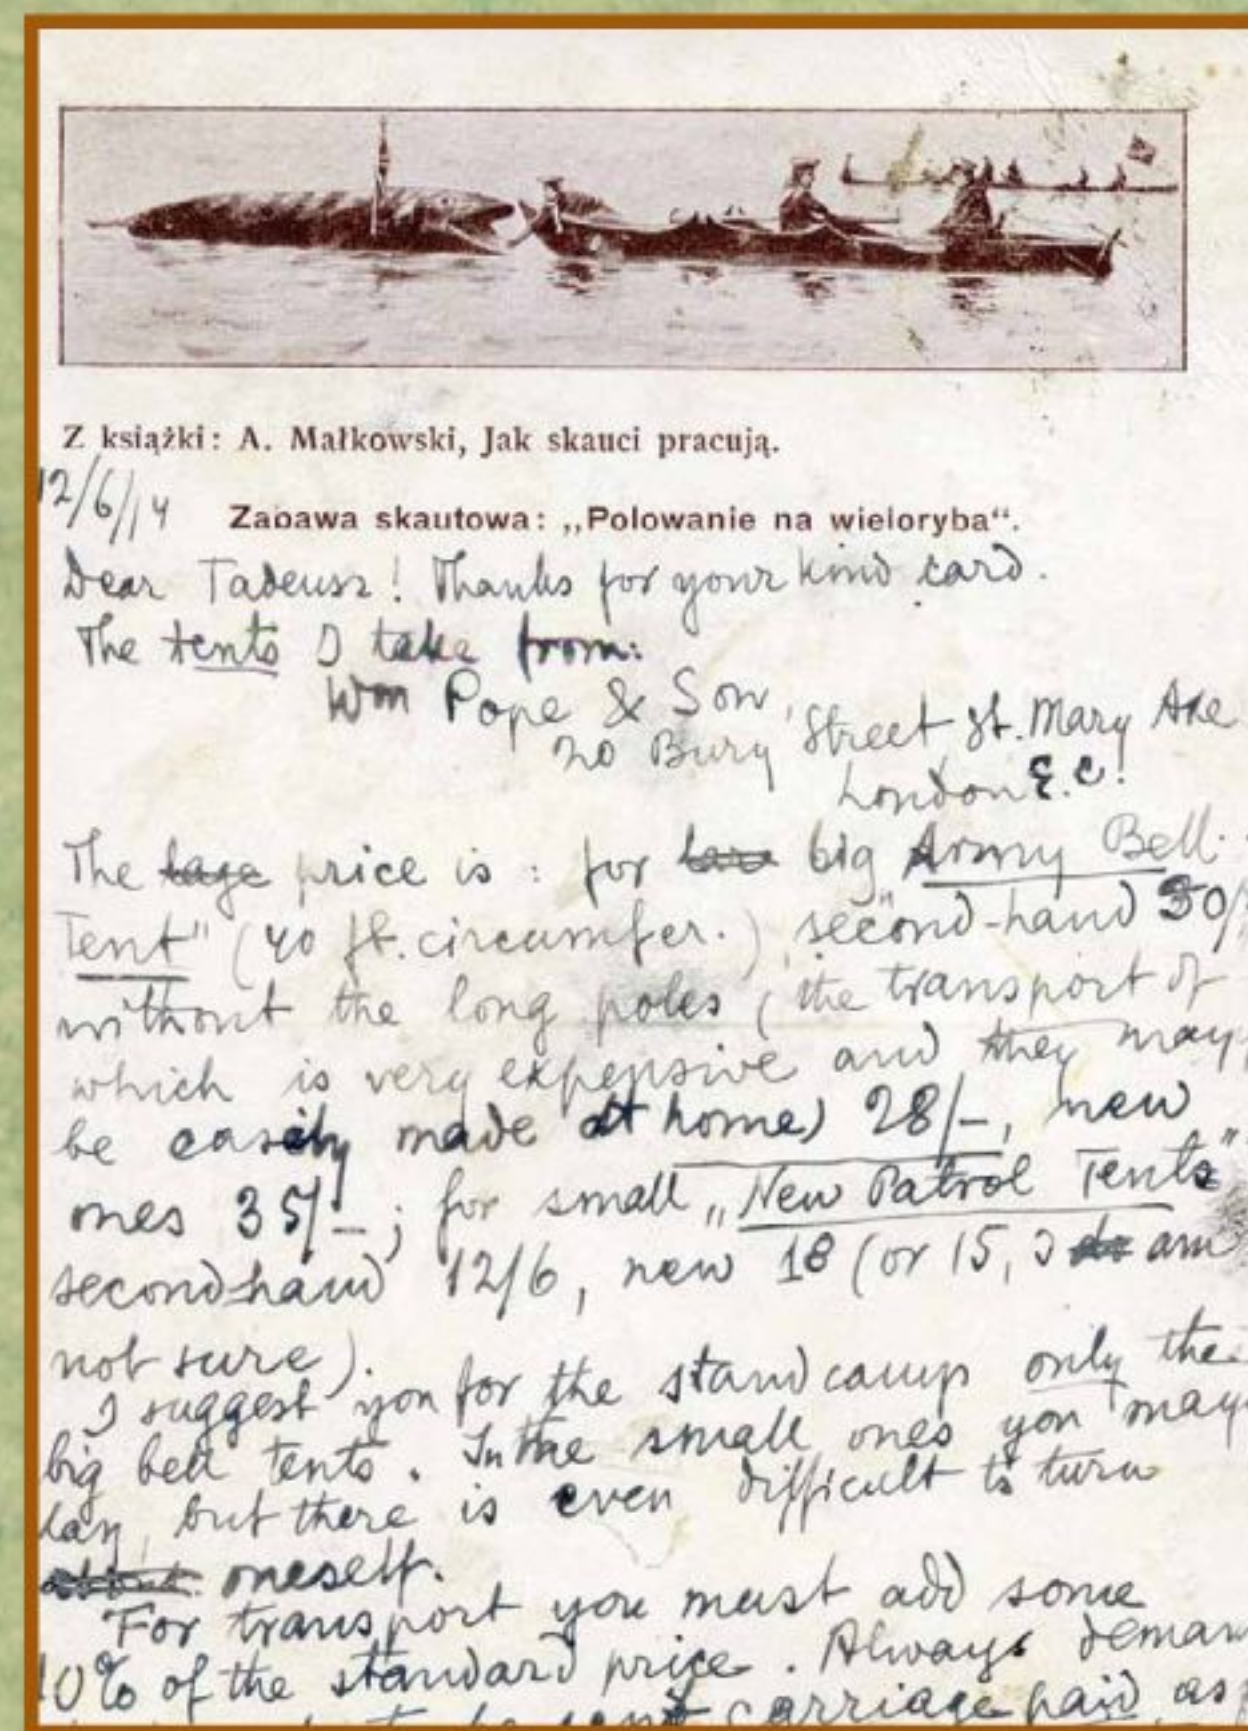 Z książki: A. Małkowski, Jak skauci pracują.
12/6/14
Zabawa skautowa: „Polowanie na wieloryba“.
Dear Tadeusz! Thanks for your kind card.
The tents I take from:
Wm Pope & Son,
20 Bury Street St. Mary Axe
London E.C!
The price is: for big „Army Bell
Tent" (40 ft. circumfer.) second-hand 30/
without the long poles (the transport of
which is very expensive and they may
be easily made at home) 28/-, new
ones 35/-; for small „New Patrol Tents"
secondhand 12/6, new 18 (or 15, I am
not sure).
I suggest you for the stand camp only the
big bell tents. In the small ones you may
lay, but there is even difficult to turn
oneself.
For transport you must add some
10% of the standard price. Always deman
carriage paid, as